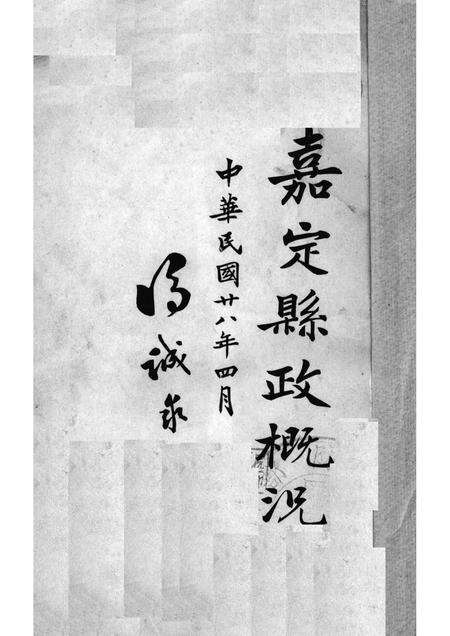 嘉定縣政概況
中華民國廿八年四月
馮誠求